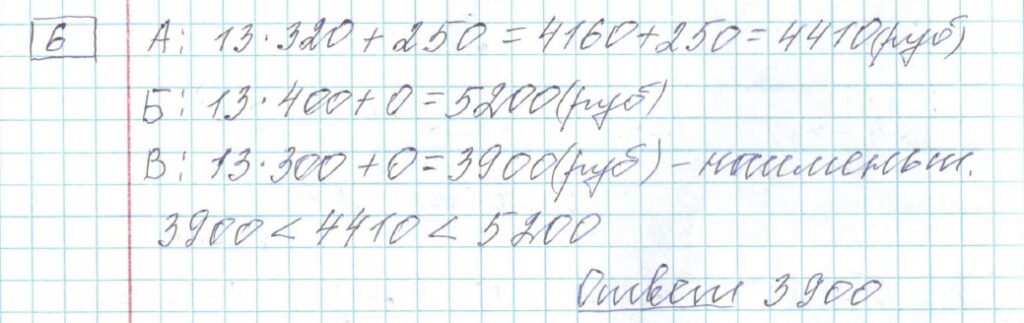 6 А: 13·320+250=4160+250=4410(руб)
Б: 13·400+0=5200(руб)
В: 13·300+0=3900(руб) – наименьш.
3900<4410<5200
Ответ 3900